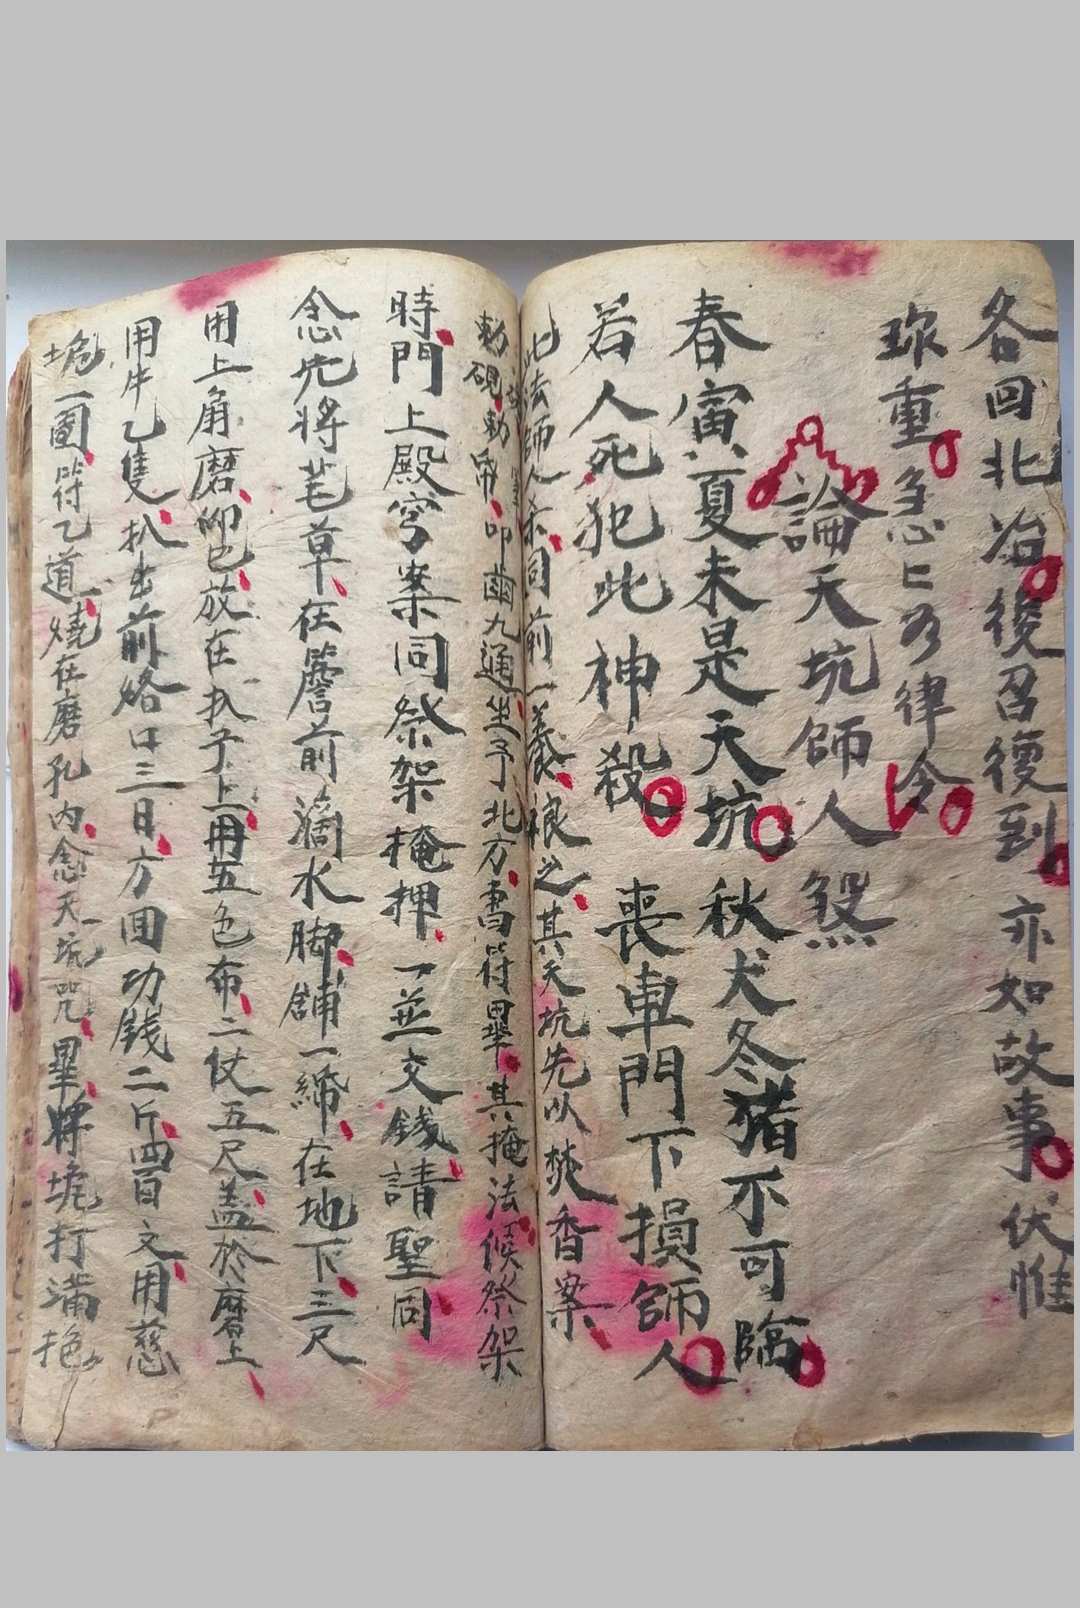 各回北治後召復到亦如故事伏惟
珎重急〻如律令
論天坑師人煞
春寅夏未是天坑秋犬冬猪不可臨
若人死犯此神殺喪車門下損師人
此法師人同前一義其天坑先以焚香案
敕硯敕帋叩齒九通坐予北方書符畢其掩法候祭架
時門上殿穹案同祭架掩押一並交錢請聖同
念先將芼草在簷前滴水脚舖一縧在地下三尺
用上角磨放在扒子上用五色布二仗五尺蓋於磨上
用牛乙隻扒出前烙口三日方回功錢二斤四百文用慈
垝一圖符乙道燒在磨孔内念天坑咒畢將垝打滿